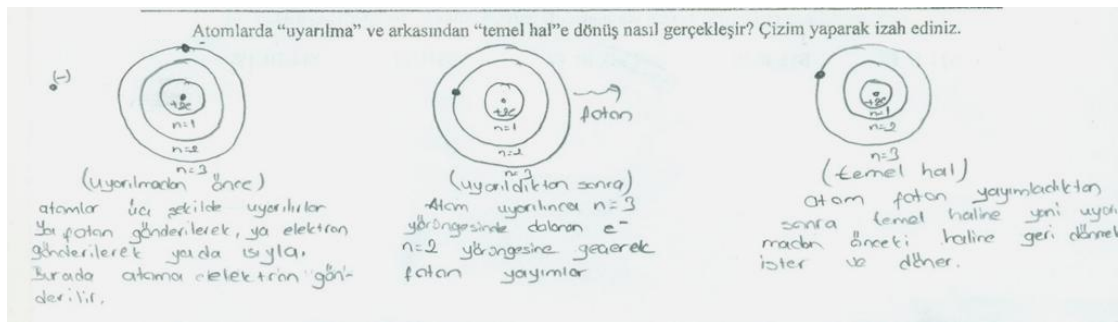 Atomlarda "uyarılma" ve arkasından "temel hal"e dönüş nasıl gerçekleşir? Çizim yaparak izah ediniz.
(-)
+2e
n=1
n=2
n=3
(uyarılmadan önce)
atomlar üç şekilde uyarılırlar
Ya foton gönderilerek, ya elektron
gönderilerek yada ısıyla.
Burada atoma elektron gön-
derilir.
+2e
n=1
n=2
n=3
foton
(uyarıldıktan sonra)
Atom uyarılınca n=3
yörüngesinde dolanan e-
n=2 yörüngesine geçerek
foton yayımlar
+2e
n=1
n=2
n=3
(temel hal)
atom foton yayımladıktan
sonra temel haline yani uyarıl
madan önceki haline geri dönmek
ister ve döner.